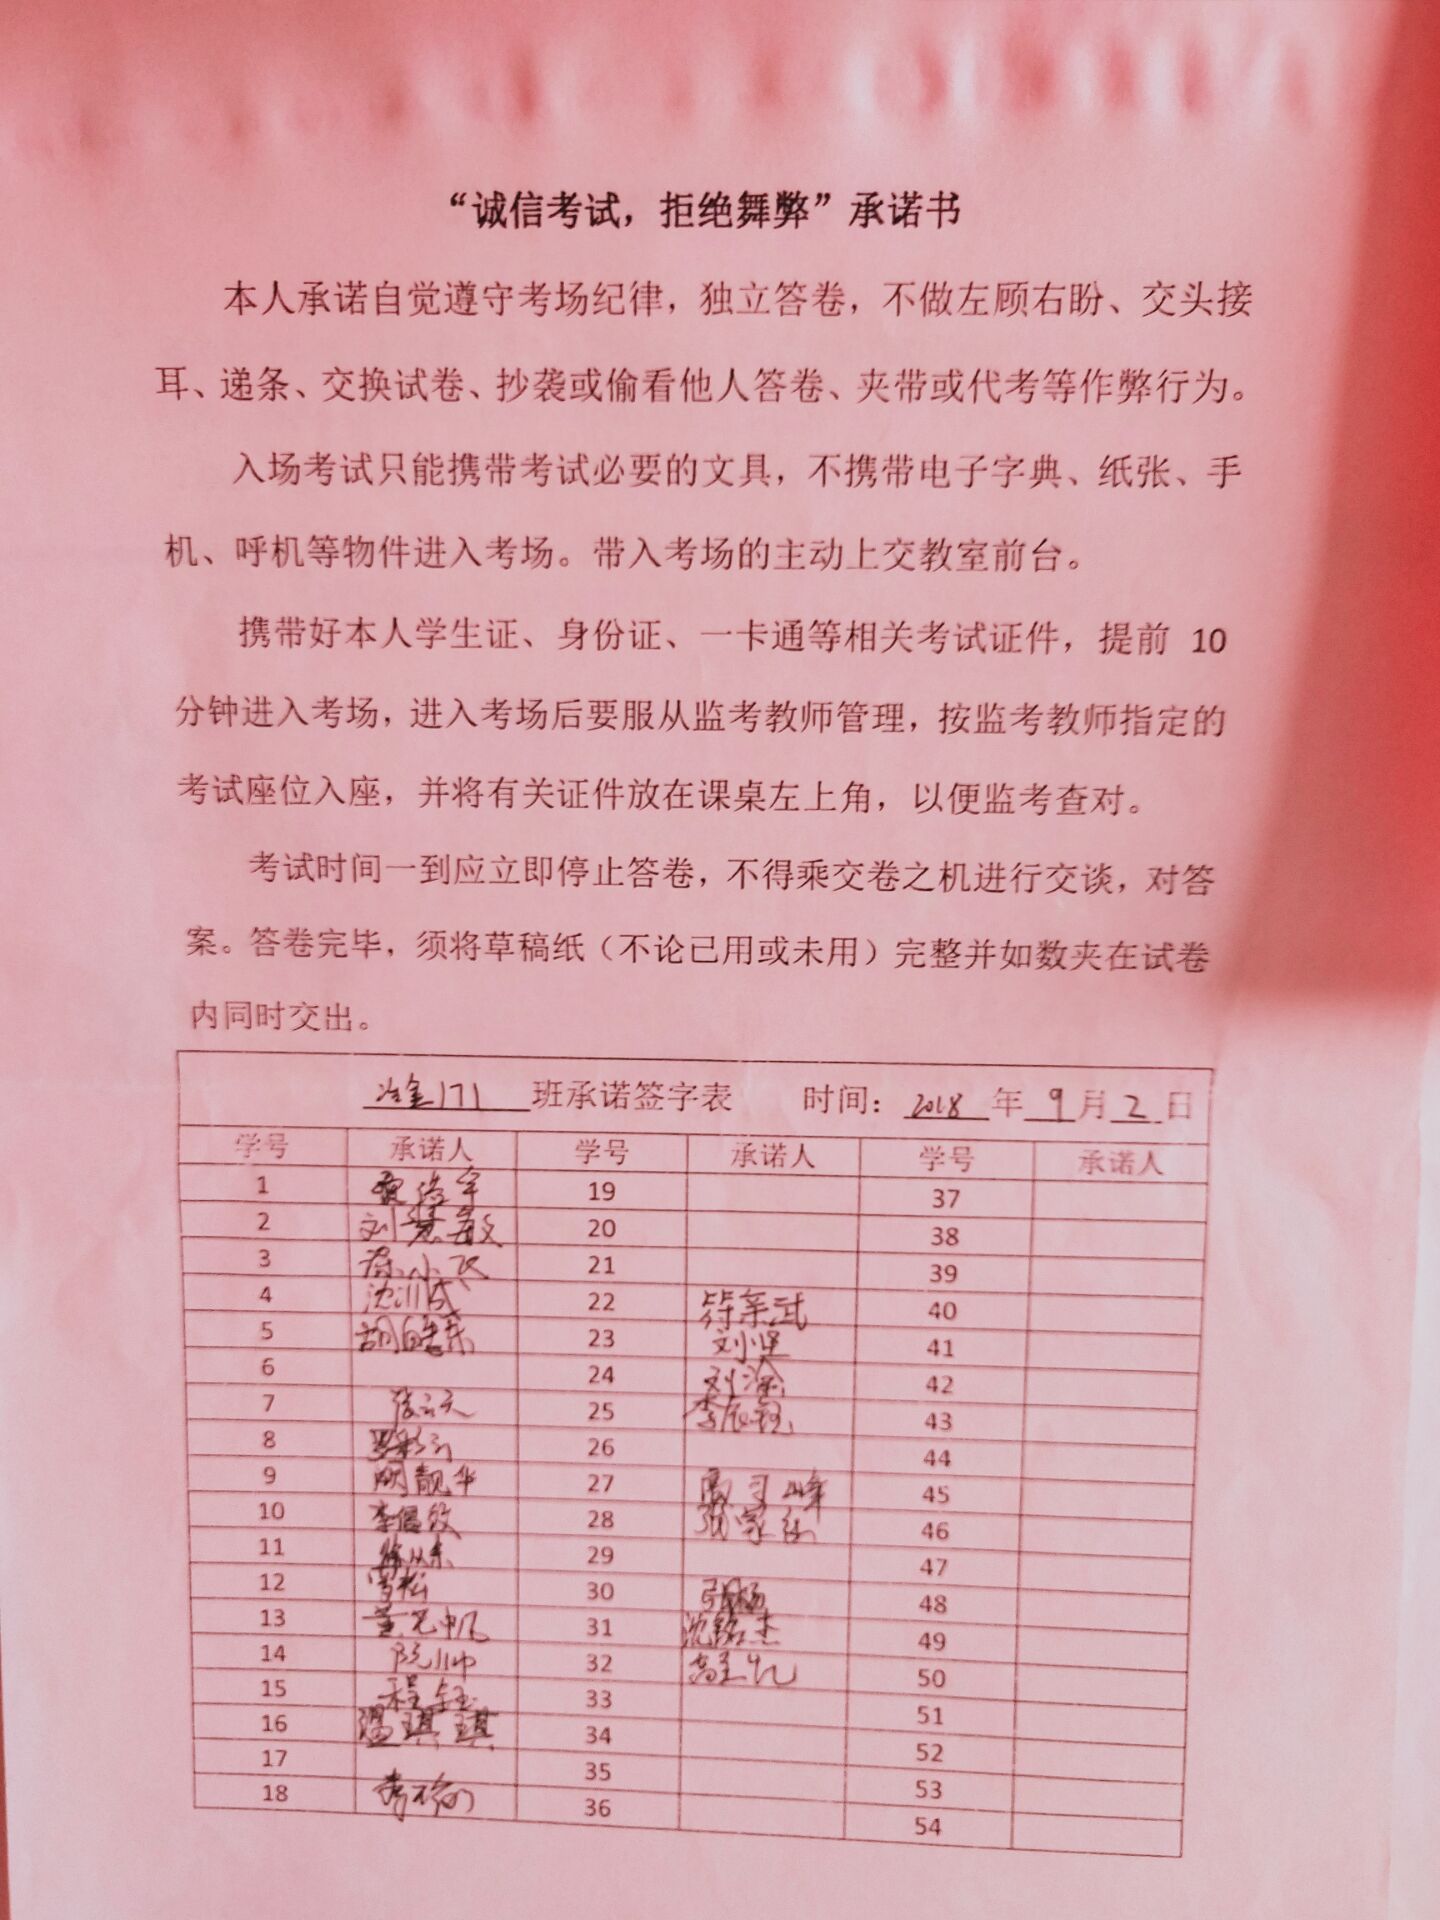 “诚信考试，拒绝舞弊”承诺书
本人承诺自觉遵守考场纪律，独立答卷，不做左顾右盼、交头接
耳、递条、交换试卷、抄袭或偷看他人答卷、夹带或代考等作弊行为。
入场考试只能携带考试必要的文具，不携带电子字典、纸张、手
机、呼机等物件进入考场。带入考场的主动上交教室前台。
携带好本人学生证、身份证、一卡通等相关考试证件，提前 10
分钟进入考场，进入考场后要服从监考教师管理，按监考教师指定的
考试座位入座，并将有关证件放在课桌左上角，以便监考查对。
考试时间一到应立即停止答卷，不得乘交卷之机进行交谈，对答
案。答卷完毕，须将草稿纸（不论已用或未用）完整并如数夹在试卷
内同时交出。
冶金171 班承诺签字表 时间：2018 年 9 月 2 日
学号 承诺人 学号 承诺人 学号 承诺人
1 19 37
2 刘慧敏 20 38
3 21 39
4 22 40
5 胡皓东 23 刘坚 41
6 24 42
7 张云天 25 李辰钰 43
8 26 44
9 明靓华 27 高可峰 45
10 28 张家 46
11 29 47
12 雪松 30 48
13 董光帆 31 沈铭杰 49
14 阮帅 32 50
15 程钰 33 51
16 温琪琪 34 52
17 35 53
18 36 54